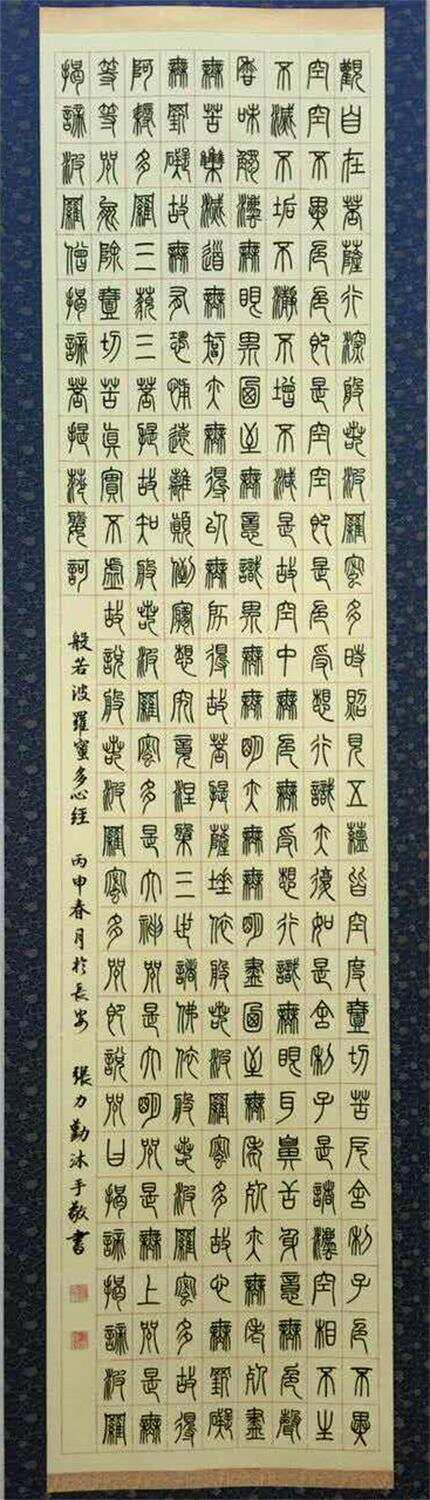 觀自在菩薩行深般若波羅蜜多時照見五蘊皆空度壹切苦厄舍利子色不異
空空不異色色即是空空即是色受想行識亦復如是舍利子是諸法空相不生
不滅不垢不淨不增不減是故空中無色無受想行識無眼耳鼻舌身意無色聲
香味觸法無眼界乃至無意識界無無明亦無無明盡乃至無老死亦無老死盡
無苦集滅道無智亦無得以無所得故菩提薩埵依般若波羅蜜多故心無罣礙
無罣礙故無有恐怖遠離顛倒夢想究竟涅槃三世諸佛依般若波羅蜜多故得
阿耨多羅三藐三菩提故知般若波羅蜜多是大神咒是大明咒是無上咒是無
等等咒能除壹切苦真實不虛故說般若波羅蜜多咒即說咒曰揭諦揭諦波羅
揭諦波羅僧揭諦菩提莎婆訶
般若波羅蜜多心經 丙申春月於長安 張力勤沐手敬書